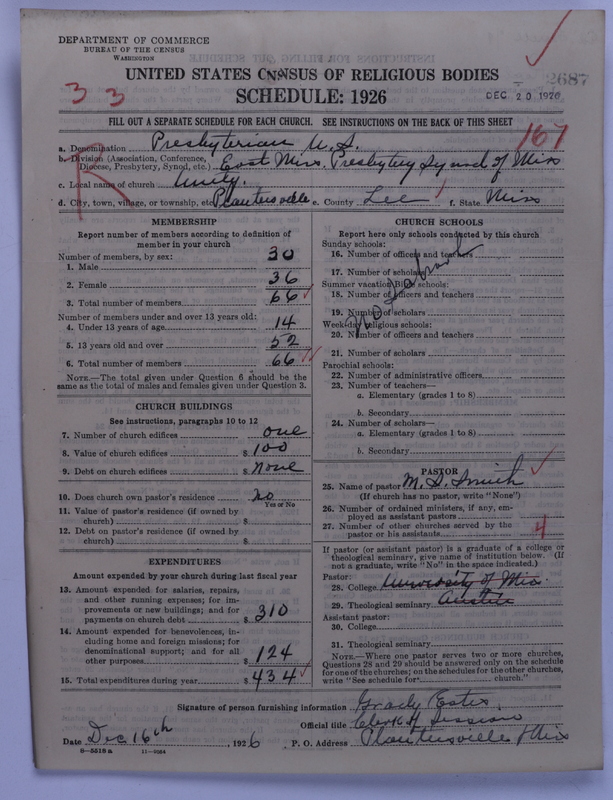 DEPARTMENT OF COMMERCE
BUREAU OF THE CENSUS
WASHINGTON
UNITED STATES CENSUS OF RELIGIOUS BODIES
SCHEDULE: 1926
2687
DEC 20 1926
33
FILL OUT A SEPARATE SCHEDULE FOR EACH CHURCH. SEE INSTRUCTIONS ON THE BACK OF THIS SHEET
167
R
a. Denomination Presbyterian U.S.
b. Division (Association, Conference, Diocese, Presbytery, Synod, etc.) East Miss. Presbytery Synod of Miss
c. Local name of church Unity.
d. City, town, village, or township, etc. Plantersville e. County Lee f. State Miss
MEMBERSHIP
Report number of members according to definition of
member in your church
Number of members, by sex:
1. Male 30
2. Female 36
3. Total number of members 66
Number of members under and over 13 years old:
4. Under 13 years of age 14
5. 13 years old and over 52
6. Total number of members 66
NOTE.—The total given under Question 6 should be the
same as the total of males and females given under Question 3.
CHURCH BUILDINGS
See instructions, paragraphs 10 to 12
7. Number of church edifices one
8. Value of church edifices $ 100
9. Debt on church edifices $ none
10. Does church own pastor's residence no
Yes or No
11. Value of pastor's residence (if owned by
church) $
12. Debt on pastor's residence (if owned by
church) $
EXPENDITURES
Amount expended by your church during last fiscal year
13. Amount expended for salaries, repairs,
and other running expenses; for im-
provements or new buildings; and for
payments on church debt $ 310
14. Amount expended for benevolences, in-
cluding home and foreign missions; for
denominational support; and for all
other purposes $ 124
15. Total expenditures during year $ 434
CHURCH SCHOOLS
Report here only schools conducted by this church
Sunday schools:
16. Number of officers and teachers
17. Number of scholars
Summer vacation Bible schools:
18. Number of officers and teachers
19. Number of scholars
Week-day religious schools:
20. Number of officers and teachers
21. Number of scholars
Parochial schools:
22. Number of administrative officers
23. Number of teachers—
a. Elementary (grades 1 to 8)
b. Secondary
24. Number of scholars—
a. Elementary (grades 1 to 8)
b. Secondary
PASTOR
25. Name of pastor M. S. Smith
(If church has no pastor, write "None")
26. Number of ordained ministers, if any, em-
ployed as assistant pastors
27. Number of other churches served by the
pastor or his assistants 4
If pastor (or assistant pastor) is a graduate of a college or
theological seminary, give name of institution below. (If
not a graduate, write "No" in the space indicated.)
Pastor:
28. College University of Miss.
29. Theological seminary Austin
Assistant pastor:
30. College
31. Theological seminary
NOTE.—Where one pastor serves two or more churches,
Questions 28 and 29 should be answered only on the schedule
for one of the churches; on the schedules for the other churches,
write "See schedule for church."
Signature of person furnishing information Grady Estes.
Official title Clerk of Session
Date Dec 16th, 1926 P. O. Address Plantersville Miss
8—5518a 11—9564